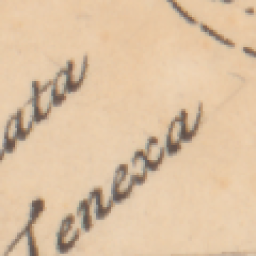 ata
Tenexa